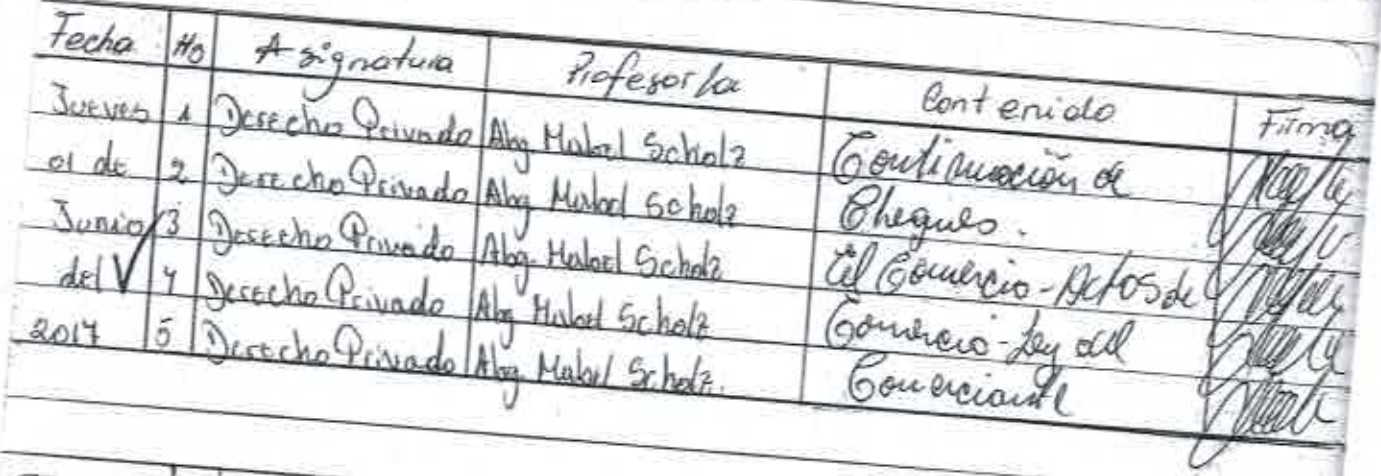 Fecha Ho Asignatura Profesor/a Contenido Firma
Jueves 1 Derecho Privado Abg Mabel Scholz Continuación de
01 de 2 Derecho Privado Abg Mabel Scholz Cheques.
Junio 3 Derecho Privado Abg. Mabel Scholz El Comercio - Actos de
del 4 Derecho Privado Abg Mabel Scholz Comercio - Ley del
2017 5 Derecho Privado Abg Mabel Scholz. Comerciante